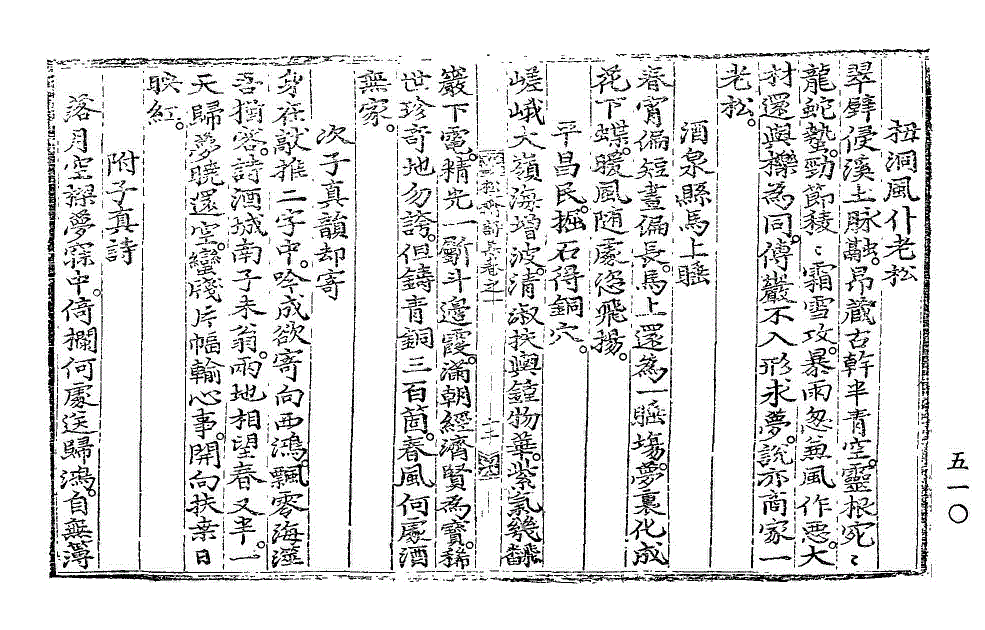 杻洞風仆老松
翠壁侵溪土脉融。昻藏古幹半青空。靈根宛〻
龍蛇蟄。勁節稜〻霜雪攻。暴雨忽兼風作惡。大
材還與櫟爲同。傅巖不入形求夢。說亦商家一
老松。
酒泉縣馬上睡
春宵偏短晝偏長。馬上還爲一睡場。夢裏化成
花下蝶。暖風隨處恣飛揚。
平昌民。掘石得銅穴。
嵯峨大嶺海增波。淸淑扶輿鍾物華。紫氣幾飜
巖下電。精光一斸斗邊霞。滿朝經濟賢爲寶。稀
世珍奇地勿誇。但鑄靑銅三百箇。春風何處酒
無家。
次子眞韻却寄
身在敲推二字中。吟成欲寄向西鴻。飄零海澨
吾猶客。詩酒城南子未翁。兩地相望春又半。一
天歸夢曉還空。蠻牋片幅輸心事。開向扶桒日
映紅。
附子眞詩
落月空樑夢寐中。倚欄何處送歸鴻。自無薄
五一〇